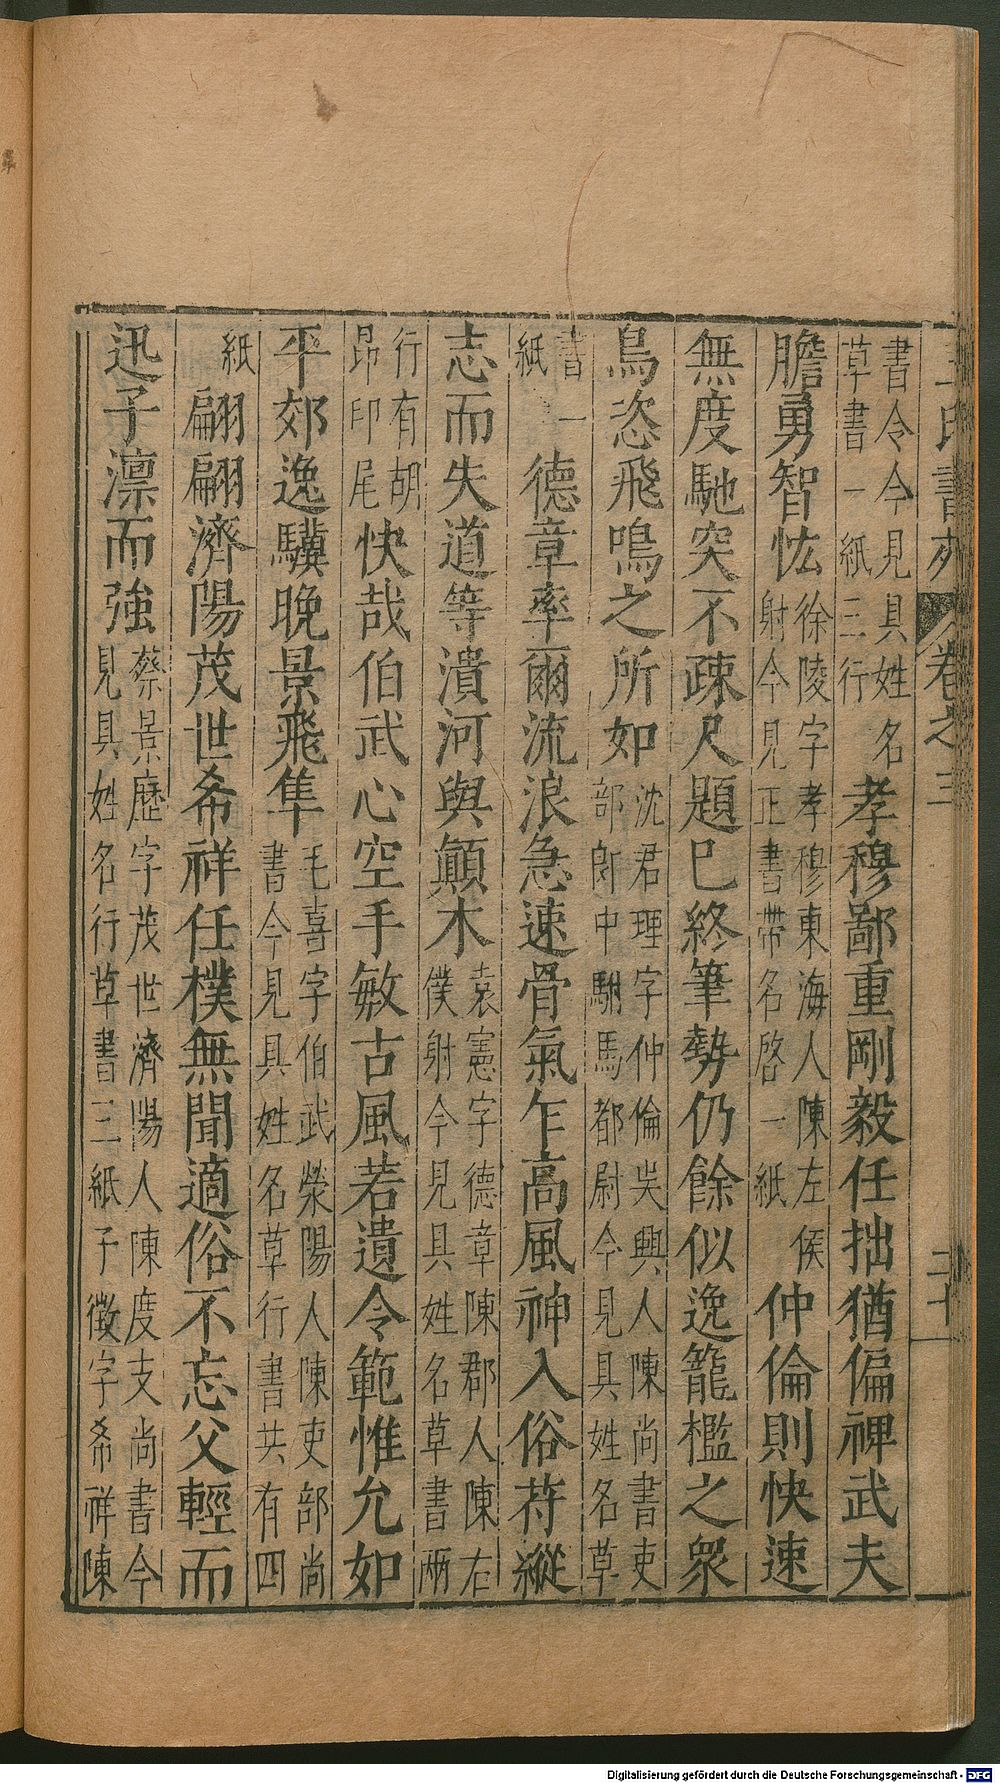 王氏書苑 卷之三 二十
書令今見具姓名
草書一紙三行
孝穆鄙重剛毅任拙猶偏裨武夫
膽勇智怯
徐陵字孝穆東海人陳左侯
射今見正書帶名啓一紙
仲倫則快速
無度馳突不疎尺題巳終筆勢仍餘似逸籠檻之衆
鳥恣飛鳴之所如
沈君理字仲倫吳興人陳尚書吏
部郎中駙馬都尉今見具姓名草
書一
紙
德章率爾流浪急速骨氣乍高風神入俗苻縱
志而失道等潰河與顛木
袁憲字德章陳郡人陳右
僕射今見具姓名草書兩
行有胡
昂印尾
快哉伯武心空手敏古風若遺令範惟允如
平郊逸驥晚景飛隼
毛喜字伯武滎陽人陳吏部尚
書今見具姓名草行書共有四
紙
翩翩濟陽茂世希祥任樸無聞適俗不忘父輕而
迅子凛而強
蔡景歷字茂世濟陽人陳度支尚書今
見具姓名行草書三紙子徵字希祥陳
Digitalisierung gefördert durch die Deutsche Forschungsgemeinschaft - DFG